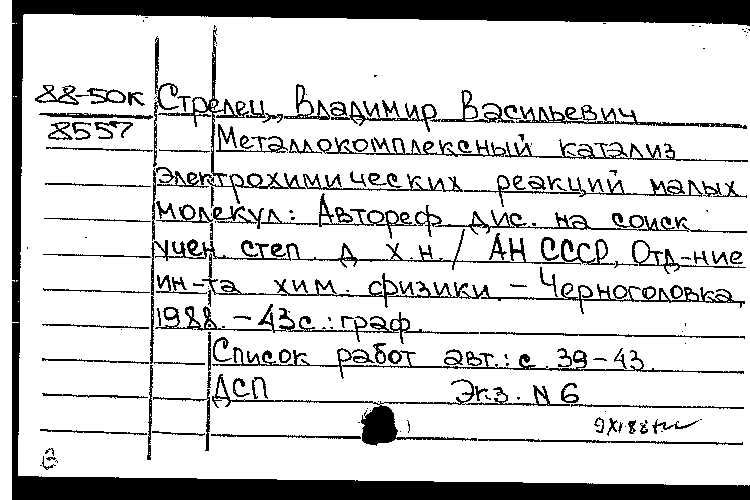 88-50к Стрелец, Владимир Васильевич
8557 Металлокомплексный катализ
электрохимических реакций малых
молекул: Автореф дис. на соиск
учен. степ. д. х.н. / АН СССР, Отд-ние
ин-та хим. физики. - Черноголовка,
1988. - 43с.: граф.
Список работ авт.: с. 39-43.
ДСП Экз. N 6